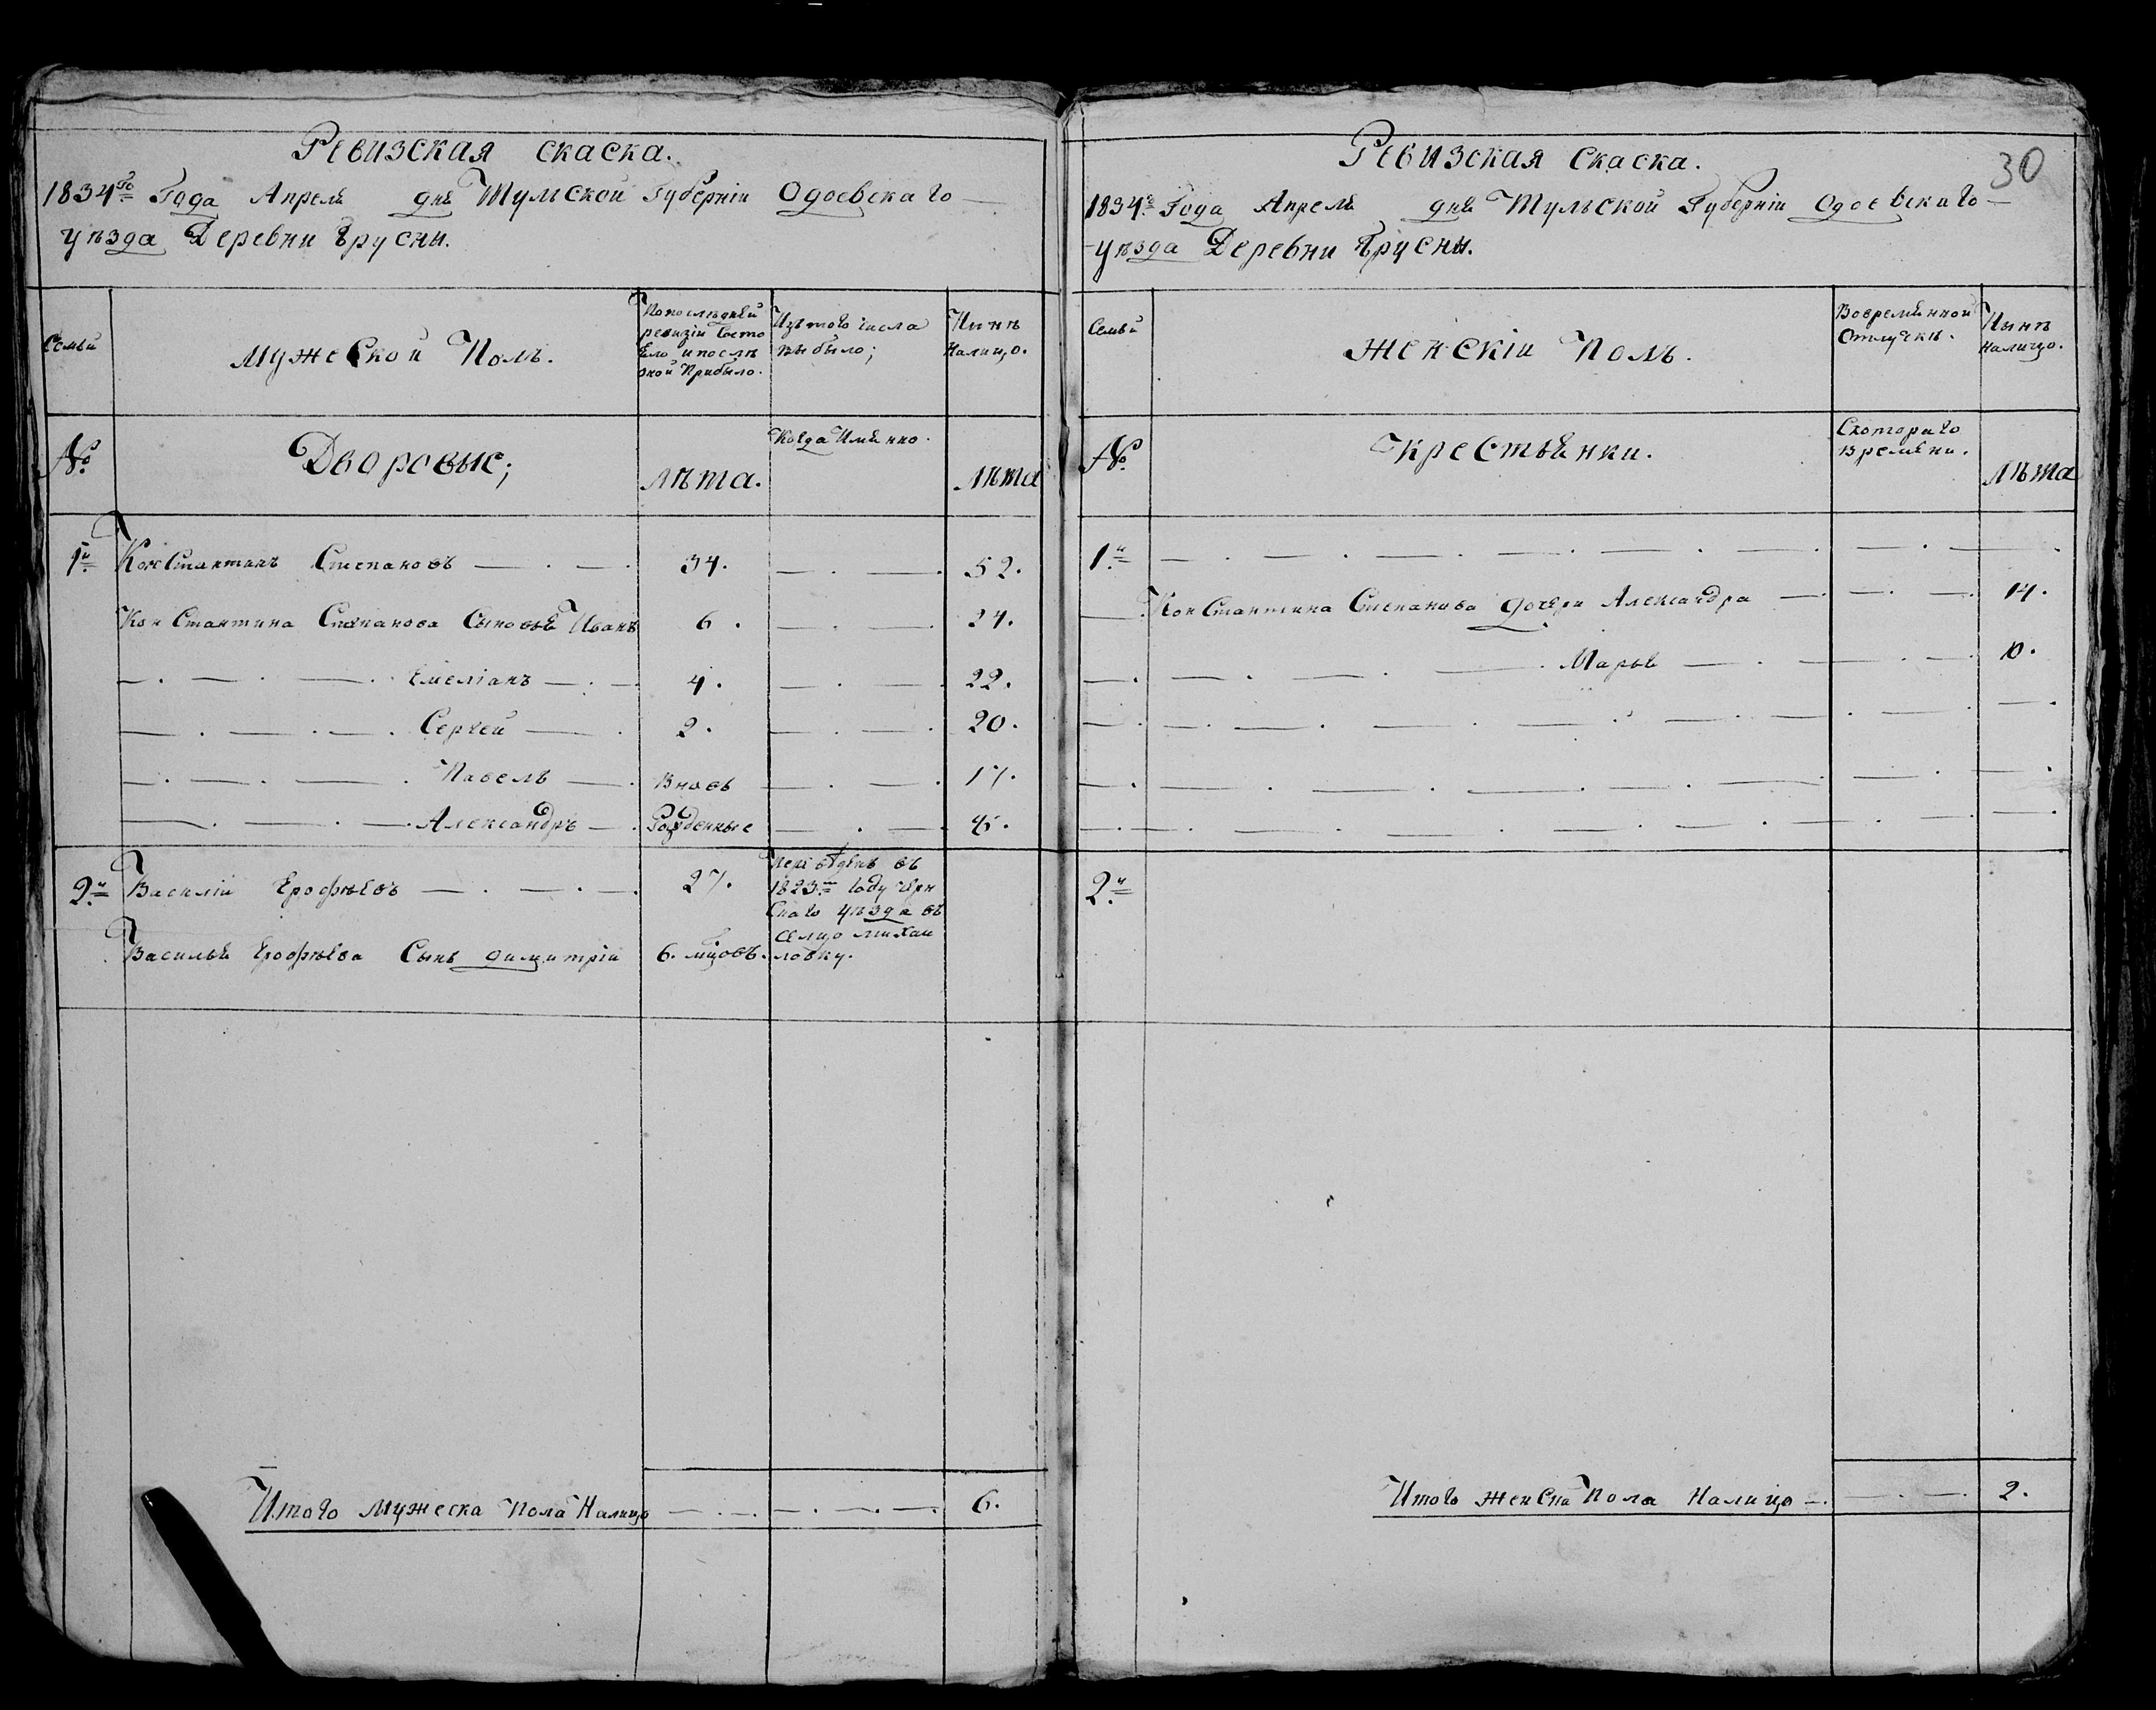 Ревизская скаска.
1834го Года Апреля дня Тульской Губерніи Одоевскаго
уѣзда Деревни Брусны.
Семьи
Мужеской Полъ.
По послѣдней
ревизіи Состо
яло и послѣ
оной Прибыло.
Изъ того числа
выбыло;
Нынѣ
Налицо.
№
Дворовые;
лѣта.
Когда Имянно.
лѣта
1й Константинъ Степановъ 34. 52.
Константина Степанова Сыновья Иванъ 6. 24.
Емеліанъ 4. 22.
Сергей 2. 20.
Павелъ Вновь 17.
Александръ Рожденные 6.
2й Василій Ерофѣевъ 27.
Переведенъ въ
1823м Году Чрн
Скаго уѣзда въ
Селцо Михаи
ловку.
Василья Ерофѣева Сынъ димитрій 6. мцовъ.
Итого Мужеска Пола Налицо 6.
30
Ревизская Скаска.
1834го Года Апреля дня Тульской Губерніи Одоевскаго
уѣзда Деревни Брусны.
Семьи
Женскій Полъ.
Вовремянной
Отлучкѣ.
Нынѣ
Налицо.
№
Крестьянки.
Скотораго
времяни.
Лѣта
1й
Константина Степанова дочери Александра 14.
Марья 10.
2й
Итого женска Пола Налицо 2.